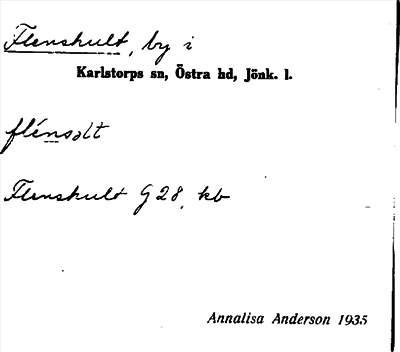 Flenshult, by i
Karlstorps sn, Östra hd, Jönk. l.
flénsɔlt
Flenshult G 28, kb
Annalisa Anderson 1935